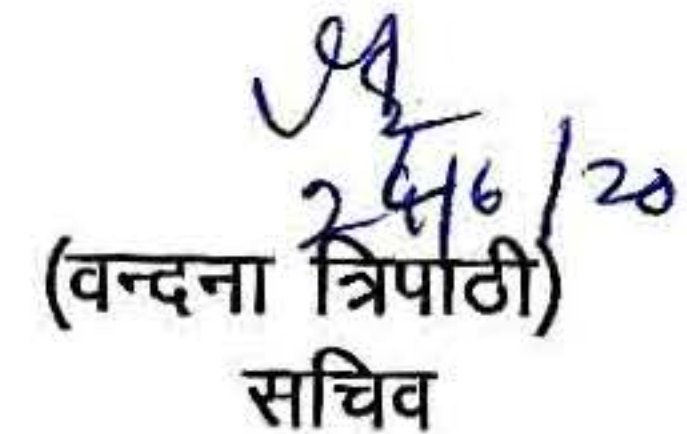 24/6/20
(वन्दना त्रिपाठी)
सचिव